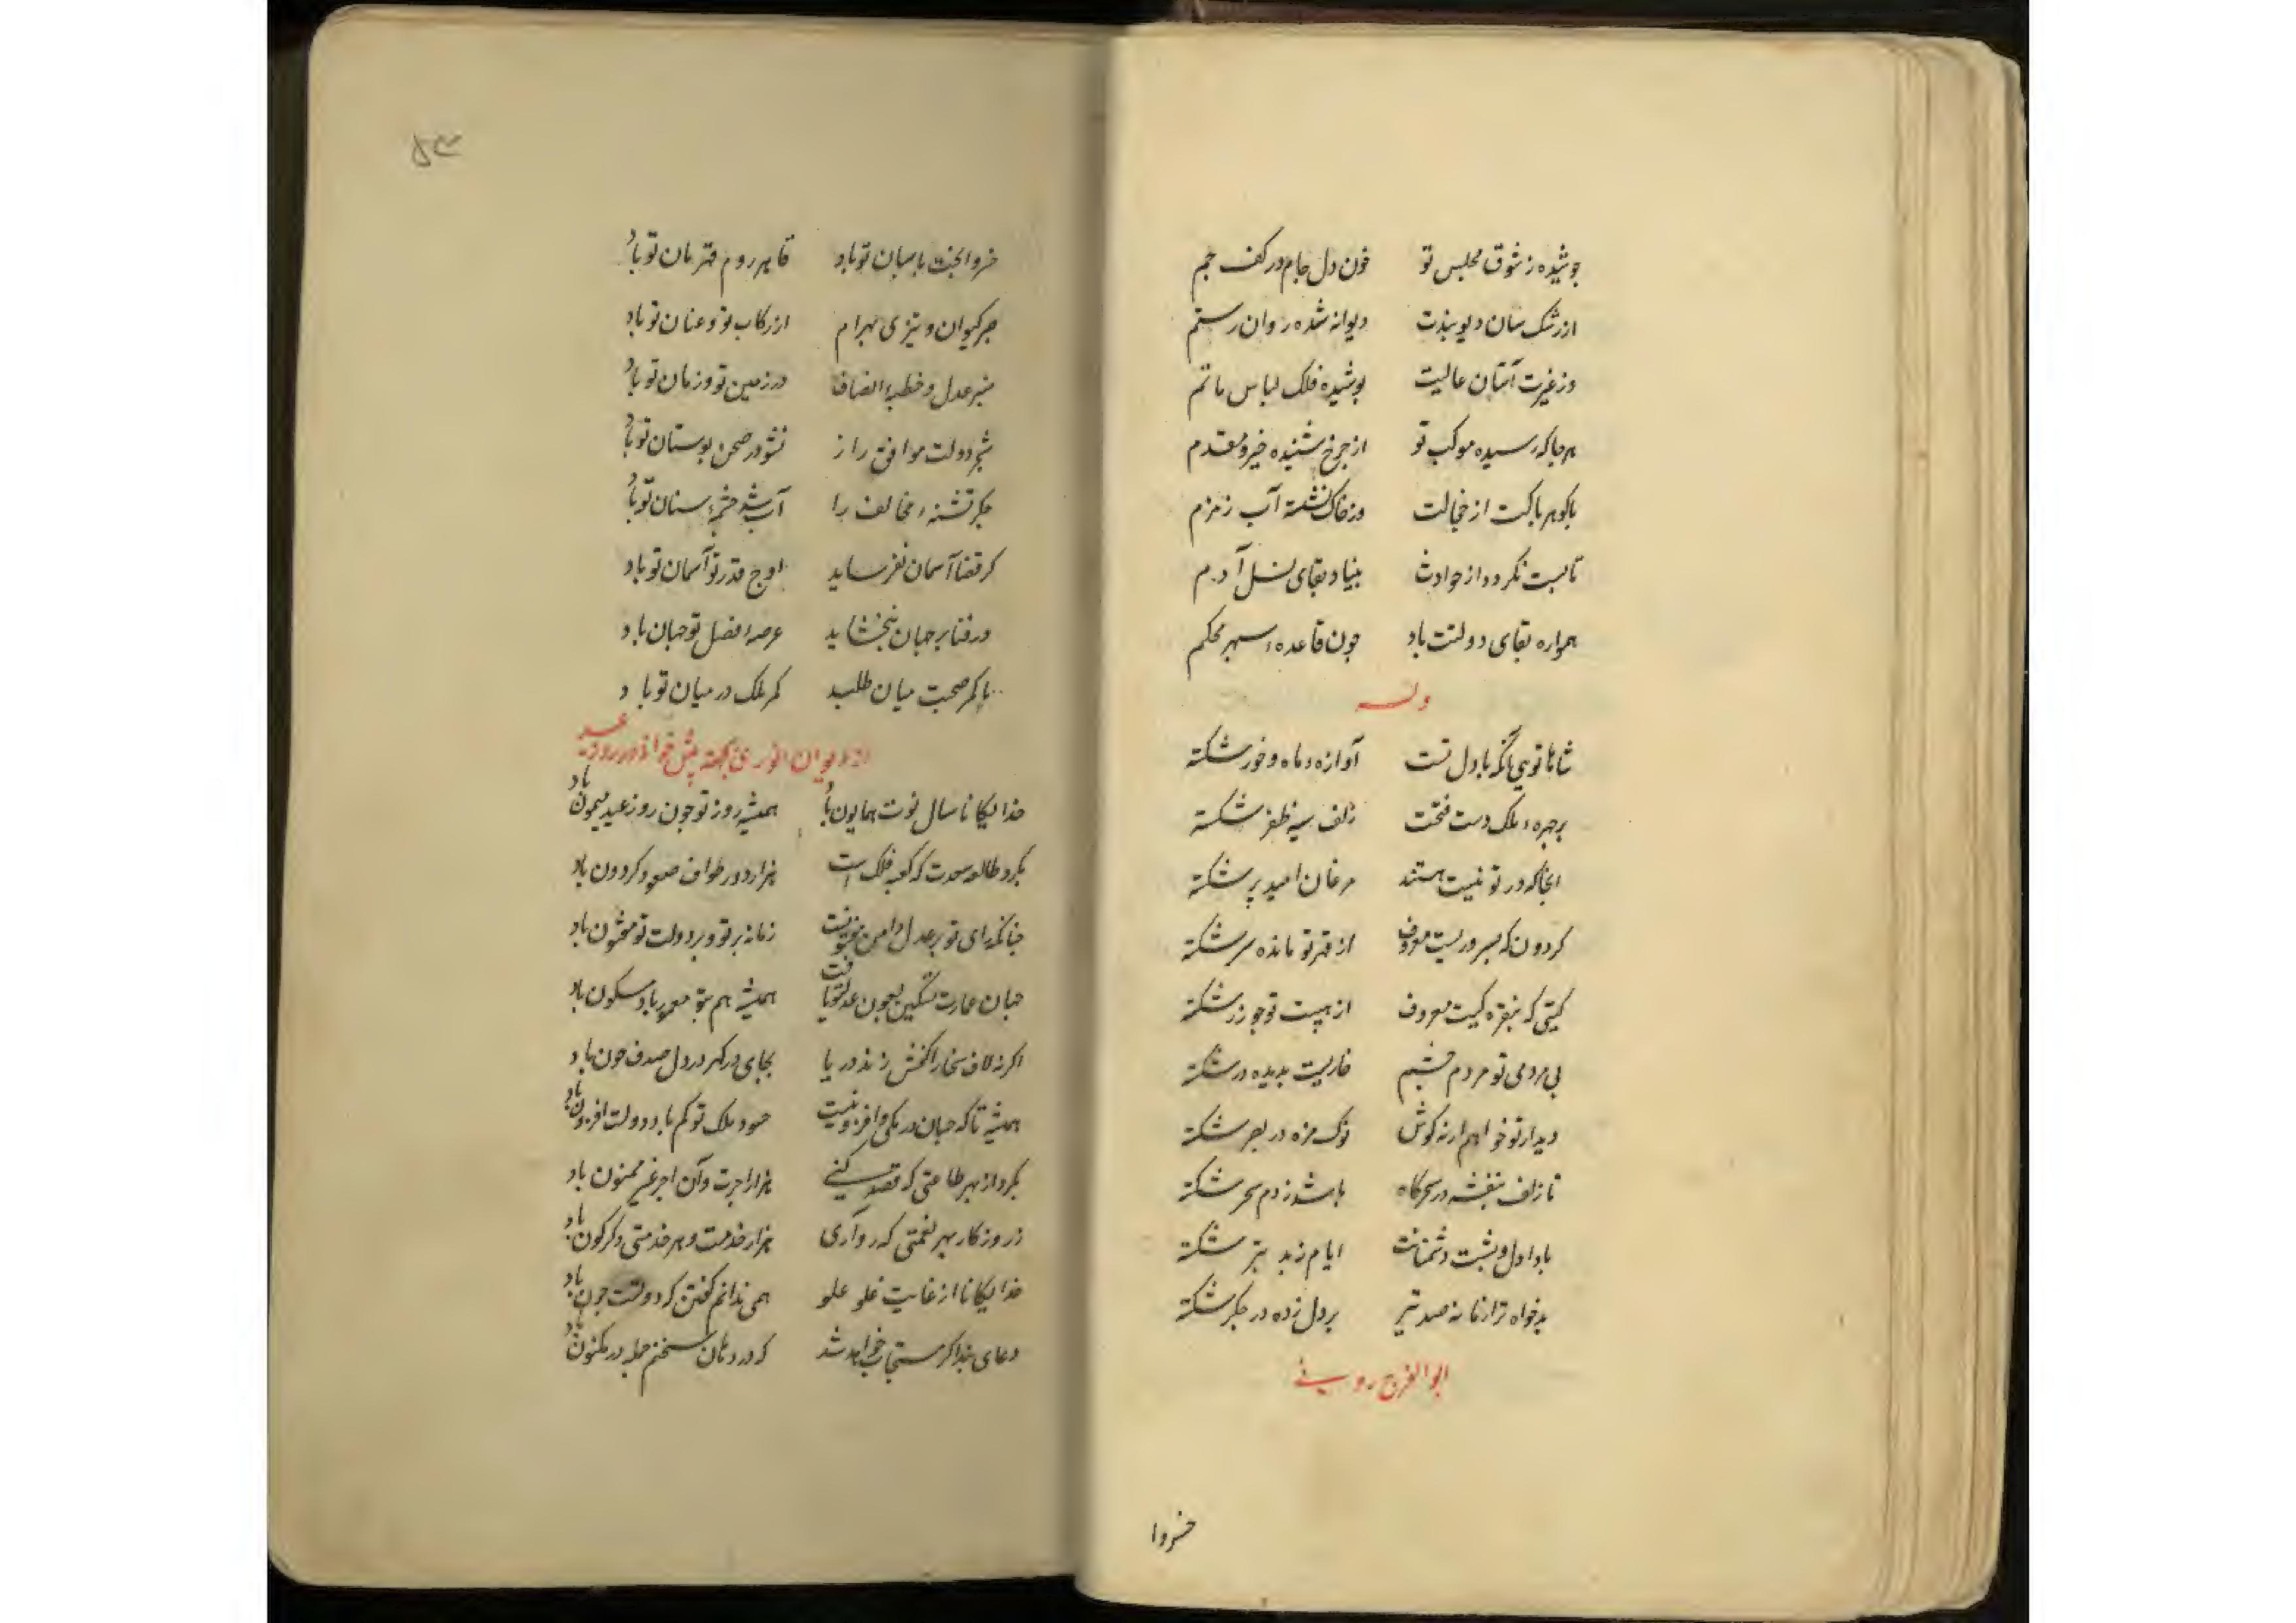 جوشیده ز شوق مجلس تو خون دل جام در کف جم
از رشک سنان دیو بندت دیوانه شده روان رستم
وز غیرت آستان عالیت پوشیده فلک لباس ماتم
هر جا که رسیده موکب تو از چرخ شنیده خیر مقدم
با گوهر پاکت از خجالت در خاک نشسته آب زمزم
تا پست نگردد از حوادث بنیاد بقای نسل آدم
همواره بقای دولتت باد چون قاعدهٔ سپهر محکم
وله
شاها تویی آنکه با دل تست آوازهٔ ماه و خور شکسته
بر چهرهٔ ملک دست فتحت زلف سیه ظفر شکسته
آنجا که در تو نیست هستند مرغان امید پر شکسته
کردون که بسروریست معروف از قهر تو مانده سر شکسته
کیتی که بنقره کیست معروف از هیبت تو چو زر شکسته
بی مردمی تو مردم چشمم خاریست بدیده در شکسته
دیدار تو خواهم ار نه کوش نوک مژه در بصر شکسته
تا زلف بنفشه در سحرگاه باشد ز دم سحر شکسته
بادا دل و پشت دشمنانت ایام ز بد بتر شکسته
بدخواه ترا زمانه صد تیر بر دل زده در جگر شکسته
ابو الفرج رونی
خسروا
۵۳
خسروا بخت پاسبان تو باد قاهر روم قهرمان تو باد
جر کیوان و تیزی بهرام از رکاب تو و عنان تو باد
منبر عدل و خطبهٔ انصاف در زمین تو و زمان تو باد
شجر دولت موافق را ز نشو در صحن بوستان تو باد
جگر تشنهٔ مخالف را آب شد چشمهٔ سنان تو باد
گر قضا آسمان بفرساید اوج قدر تو آسمان تو باد
ور فنا بر جهان ببخشاید عرصهٔ فضل تو جهان باد
تا کمر صحبت میان طلبد کمر ملک در میان تو باد
از دیوان انوری بجهته پیش خواندن در روز عید
خدایگانا سال نوت همایون باد همیشه روز تو چون روز عید میمون باد
بگرد طالع سعدت که کعبه فلک است هزار دور طواف صعود گردون باد
چنانکه رای تو بر عدل و امن مفتونست زمانه بر تو و بر دولت تو مفتون باد
جهان عمارت و تسکین بعون عدل تو یافت همیشه هم بتو معمور باد و مسکون باد
اگر نه لاف سخا را کفش زند دریا بجای در گهر در دل صدف خون باد
همیشه تا که جهان در کمی و افزونیست حسود ملک تو کم باد و دولت افزون باد
بگرد از بهر طاعتی که قصد کنی هزار اجرت و آن اجر غیر ممنون باد
ز روزگار بهر نعمتی که رو آری هزار خدمت و هر خدمتی دگرگون باد
خدایگانا از غایت غلو علو همی ندانم گفتن که دولتت چون باد
دعای بنده اگر مستجاب خواهد شد که در دهان سخنم جمله در مکنون باد